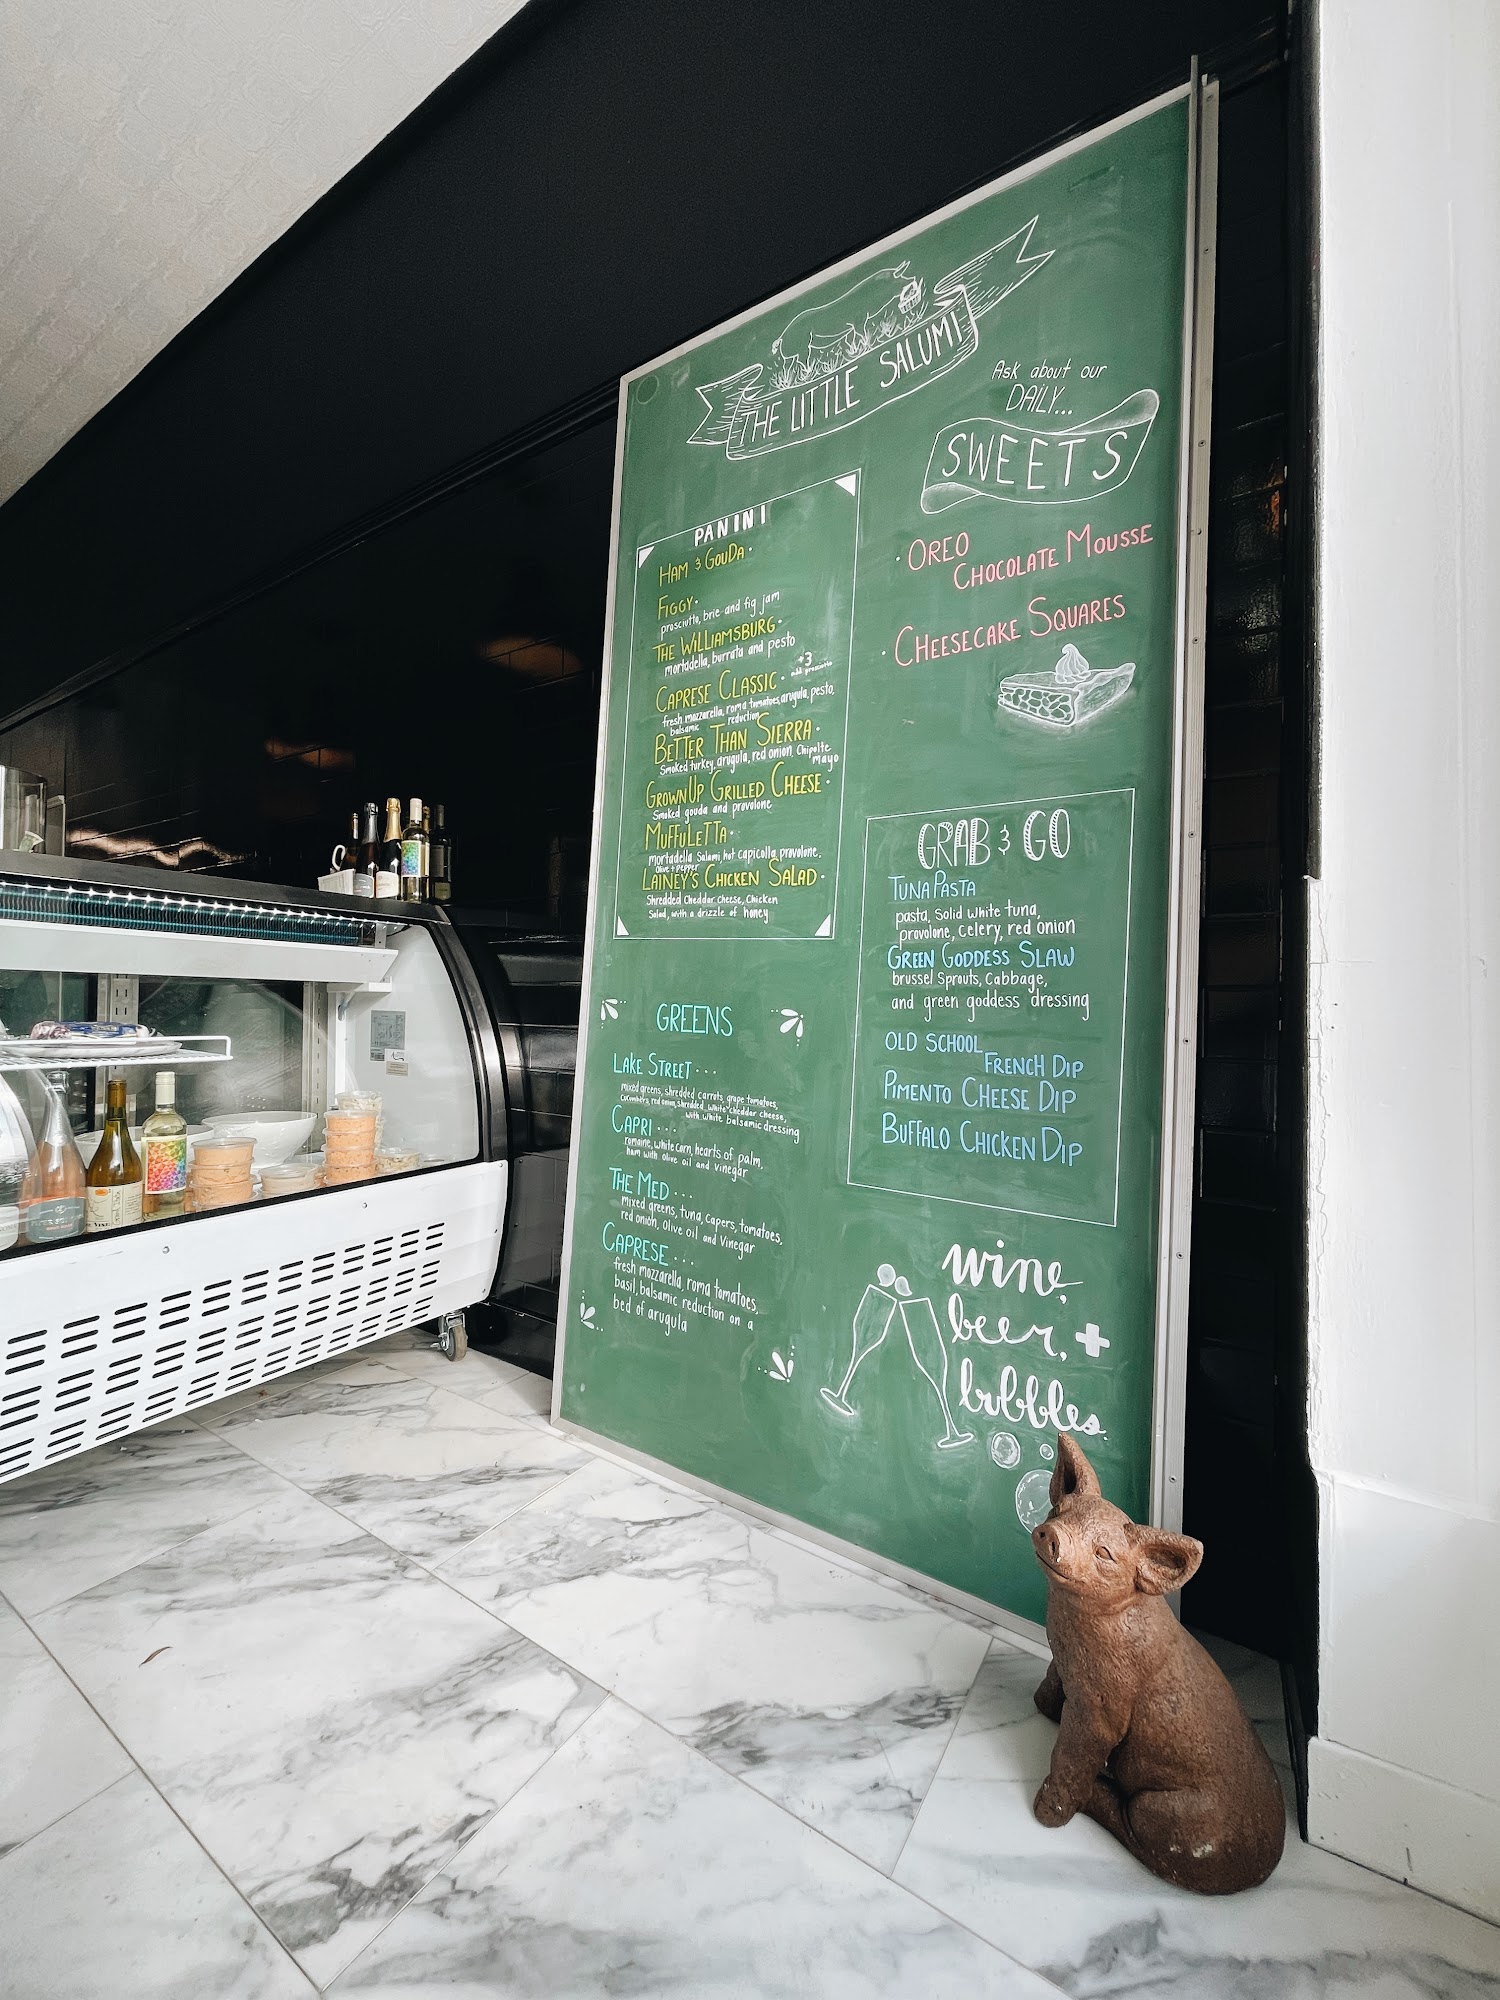 THE LITTLE SALUMI
Ask about our
DAILY...
SWEETS
· OREO
CHOCOLATE MOUSSE
· CHEESECAKE SQUARES
PANINI
HAM & GOUDA ·
FIGGY ·
prosciutto, brie and fig jam
THE WILLIAMSBURG ·
mortadella, burrata and pesto
CAPRESE CLASSIC · +3
add prosciutto
fresh mozzarella, roma tomatoes, arugula, pesto,
balsamic reduction
BETTER THAN SIERRA ·
Smoked turkey, arugula, red onion, Chipolte
mayo
GROWNUP GRILLED CHEESE ·
Smoked gouda and provolone
MUFFULETTA ·
mortadella, Salami, hot capicolla, provolone,
Olive + pepper
LAINEY'S CHICKEN SALAD ·
Shredded Cheddar Cheese, Chicken
Salad, with a drizzle of honey
GRAB & GO
TUNA PASTA
pasta, solid white tuna,
provolone, celery, red onion
GREEN GODDESS SLAW
brussel Sprouts, Cabbage,
and green goddess dressing
OLD SCHOOL
FRENCH DIP
PIMENTO CHEESE DIP
BUFFALO CHICKEN DIP
GREENS
LAKE STREET ...
mixed greens, shredded carrots, grape tomatoes,
cucumbers, red onion, shredded white cheddar cheese,
with white balsamic dressing
CAPRI ...
romaine, white corn, hearts of palm,
ham with olive oil and vinegar
THE MED ...
mixed greens, tuna, capers, tomatoes,
red onion, Olive oil and Vinegar
CAPRESE ...
fresh mozzarella, roma tomatoes,
basil, balsamic reduction on a
bed of arugula
wine,
beer, +
bubbles.